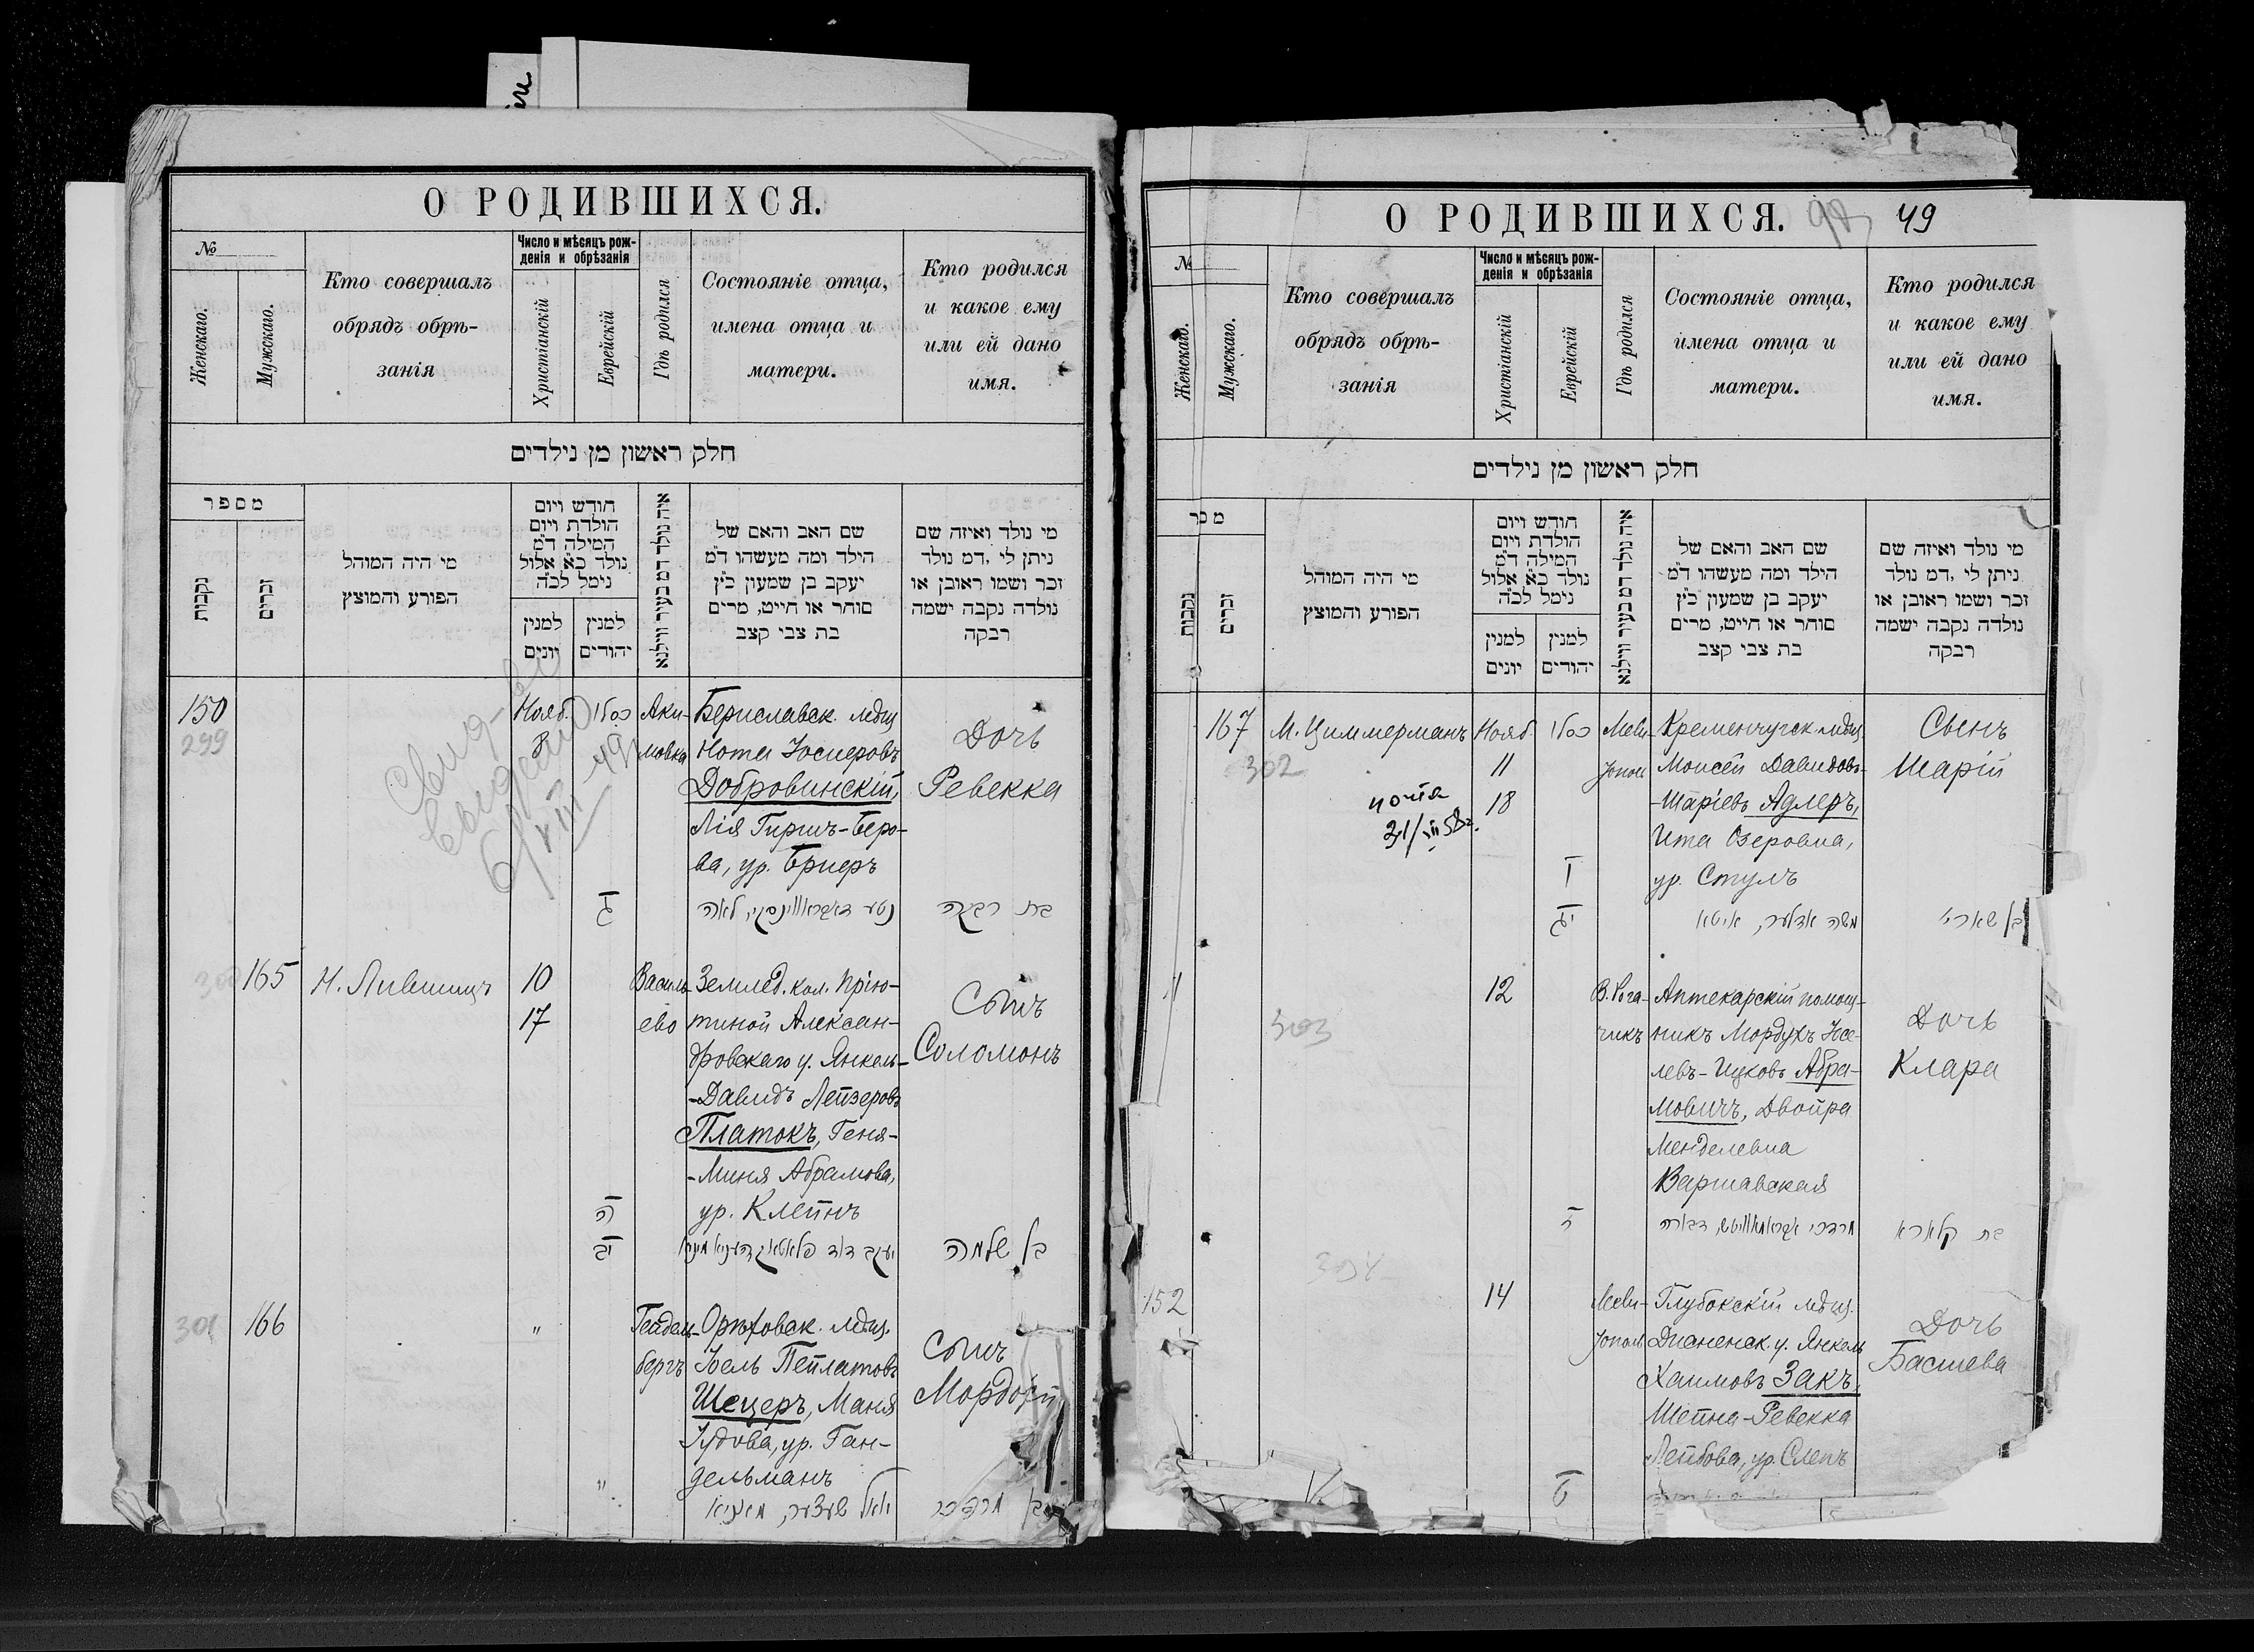 О РОДИВШИХСЯ.
№
Женскаго.
Мужскаго.
Кто совершалъ
обрядъ обрѣ-
занія
Число и мѣсяцъ рож-
денія и обрѣзанія
Христіанскій
Еврейскій
Гдѣ родился
Состояніе отца,
имена отца и
матери.
Кто родился
и какое ему
или ей дано
имя.
חלק ראשון מן נילדים
מספר
נקבות
זכרים
מי היה המוהל
הפורע והמוצץ
חודש ויום
הולדת ויום
המילה ד"מ
נולד כ"א אלול
נימל לכ"ה
למנין
יונים
למנין
יהודים
איה נולד דמ בעיר ווילנא
שם האב והאם של
הילד ומה מעשהו ד"מ
יעקב בן שמעון כ"ץ
סוחר או חייט, מרים
בת צבי קצב
מי נולד ואיזה שם
ניתן לי, דמ נולד
זכר ושמו ראובן או
נולדה נקבה ישמה
רבקה
150
299
Нояб.
8
כסלו
Аки-
мовка
Бериславск. мѣщ.
Нота Іосиеровъ
Добровинскій,
Лія Гиршъ-Беро-
ва, ур. Бриеръ
Дочь
Ревекка
ג
נטע דאבראווינסקי, לאה
בת רבקה
165
Н. Лившицъ
10
17
Василь-
ево
Землед. кол. Прію-
тиной Алексан-
дровскаго у. Янкель-
-Давидъ Лейзеровъ
Платокъ, Геня-
-Миня Абрамова,
ур. Клейнъ
Сынъ
Соломонъ
ה
יב
יעקב דוד פלאטאק
בן שלמה
301
166
"
Гейдель-
бергъ
Орѣховск. мѣщ.
Іоель Пейлатовъ
Шецеръ, Маня
Іудова, ур. Ган-
дельманъ
Сынъ
Мордохй
"
יואל שעצער, מאניא
בן מרדכי
О РОДИВШИХСЯ.
98
49
№
Женскаго.
Мужскаго.
Кто совершалъ
обрядъ обрѣ-
занія
Число и мѣсяцъ рож-
денія и обрѣзанія
Христіанскій
Еврейскій
Гдѣ родился
Состояніе отца,
имена отца и
матери.
Кто родился
и какое ему
или ей дано
имя.
חלק ראשון מן נילדים
נקבות
זכרים
מי היה המוהל
הפורע והמוצץ
חודש ויום
הולדת ויום
המילה ד"מ
נולד כ"א אלול
נימל לכ"ה
למנין
יונים
למנין
יהודים
איה נולד דמ בעיר ווילנא
שם האב והאם של
הילד ומה מעשהו ד"מ
יעקב בן שמעון כ"ץ
סוחר או חייט, מרים
בת צבי קצב
מי נולד ואיזה שם
ניתן לי, דמ נולד
זכר ושמו ראובן או
נולדה נקבה ישמה
רבקה
167
302
М. Циммерманъ
Нояб.
11
18
כסלו
Мели-
Кременчугск. мѣщ.
Моисей Давидовъ-
-Шаріевъ Адлеръ,
Ита Озеровна,
ур. Стулъ
Сынъ
Шарій
ו
יג
משה אדלער, איטא
בן שארי
303
12
В. Рога-
чикъ
Аптекарскій помощ-
никъ Мордухъ Іосе-
левъ-Ицковъ Абра-
мовичъ, Двойра
Менделевна
Варшавская
Дочь
Клара
ז
מרדכי אבראמאוויטש, דבורה
בת קלארא
152
304
14
Мели-
тополь
Глубокскій мѣщ.
Дисненск. у. Янкель
Хаимовъ Закъ,
Шейна-Ревекка
Лейбова, ур. Слепъ
Дочь
Басшева
ט